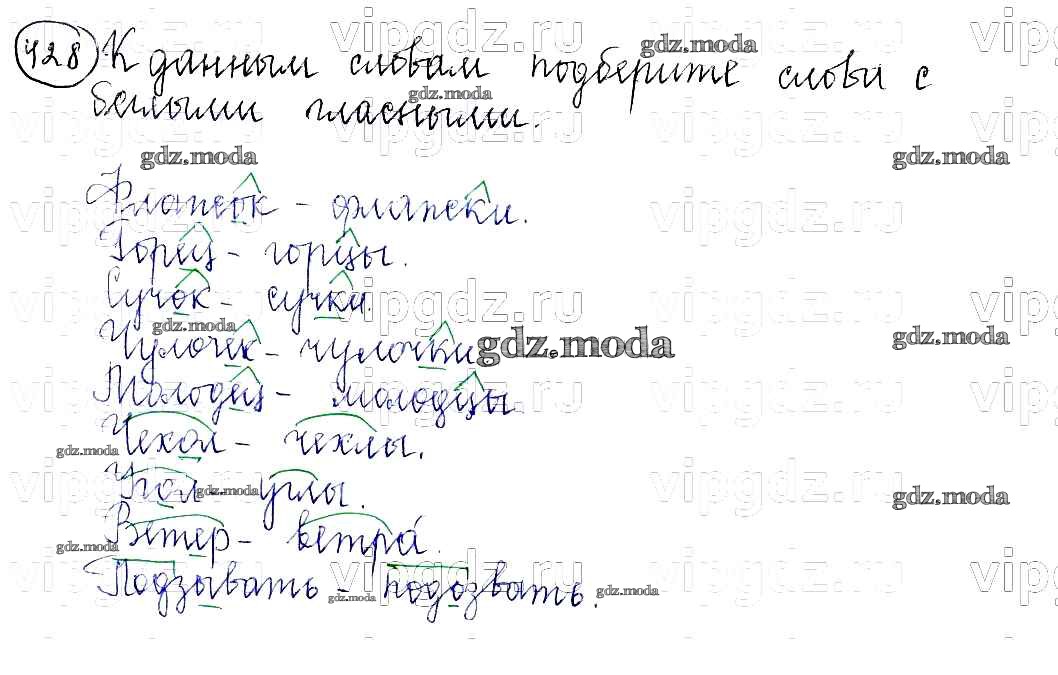 428 К данным словам подберите слова с
беглыми гласными.
Флапсок - флапски.
Горец - горцы.
Сучок - сучки.
Чулочек - чулочки.
Молодец - молодцы
Чехол - чехлы.
Угол - углы.
Ветер - ветра́.
Подзывать - подозвать.
vipgdz.ru
gdz.moda